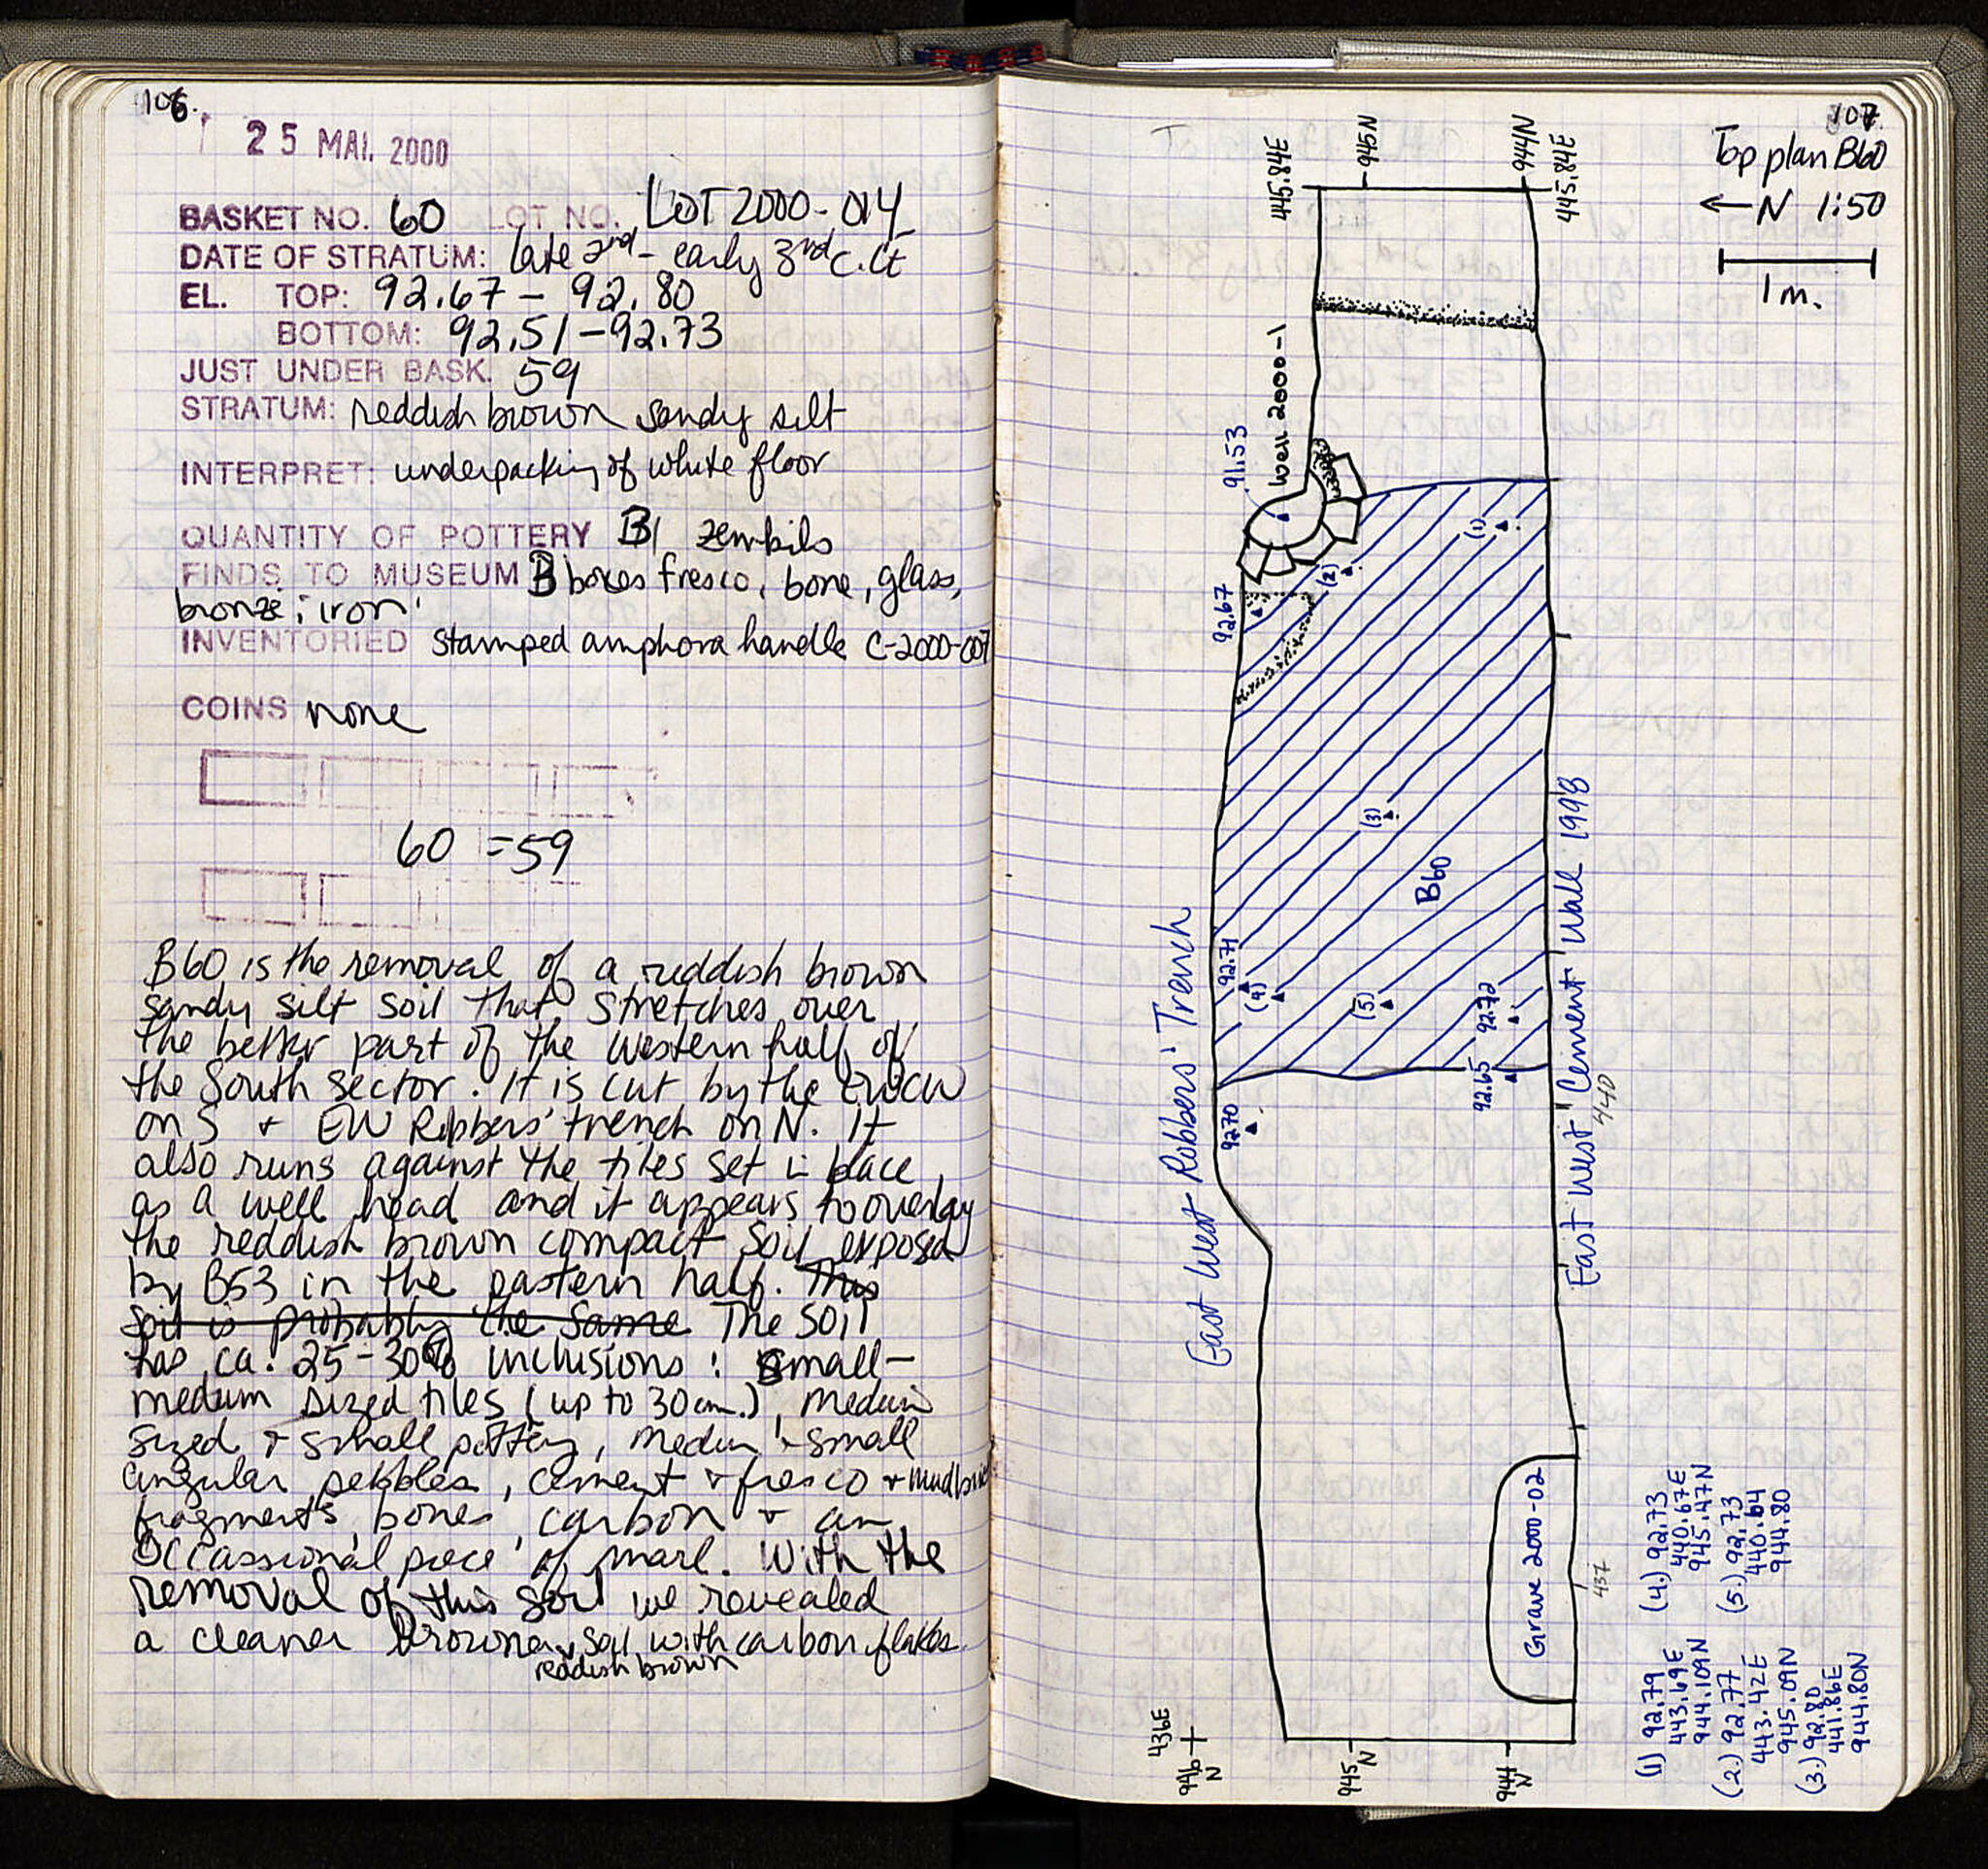 106.
25 MAI. 2000
BASKET NO. 60 LOT NO. LOT 2000-014
DATE OF STRATUM: late 2nd - early 3rd c. CE
EL. TOP: 92.67 - 92.80
BOTTOM: 92.51-92.73
JUST UNDER BASK. 59
STRATUM: reddish brown sandy silt
INTERPRET: underpacking of white floor
QUANTITY OF POTTERY zembils
FINDS TO MUSEUM boxes fresco, bone, glass,
bronze, iron
INVENTORIED stamped amphora handle C-2000-007
COINS none
60 = 59
B60 is the removal of a reddish brown
sandy silt soil that stretches over
the better part of the western half of
the South sector. It is cut by the EWCW
on S + EW Robbers' trench on N. It
also runs against the tiles set in place
as a well head and it appears to overlay
the reddish brown compact soil exposed
by B53 in the eastern half. This
soil is probably the same The soil
has ca. 25-30% inclusions: small-
medium sized tiles (up to 30cm.), medium
sized + small pottery, medium + small
angular pebbles, cement + fresco + mudbrick
fragments, bones, carbon + an
occassional piece of marl. With the
removal of this soil we revealed
a cleaner browner soil with carbon flakes.
reddish brown
107.
Top plan B60
← N 1:50
1m.
445.84E
945N
944N
445.84E
Well 2000-1
91.53
92.67
(1)
(2)
(3)
B60
92.71
(4)
(5)
92.72
92.65
92.70
East West Robbers' Trench
East West "Cement" Wall 1998
440
Grave 2000-02
437
436E
946 N
945 N
944 N
(1) 92.79
443.69E
944.109N
(2.) 92.77
443.42E
945.09N
(3.) 92.80
441.86E
944.80N
(4.) 92.73
440.67E
945.47N
(5.) 92.73
440.64
944.80